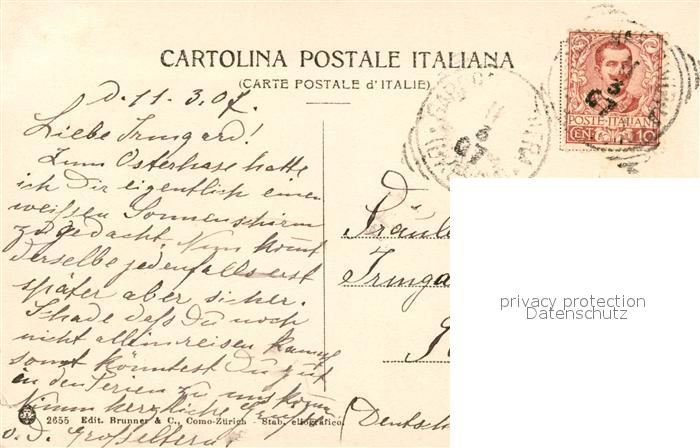 CARTOLINA POSTALE ITALIANA
(CARTE POSTALE d'ITALIE)
POSTE ITALIANE
CENT 10
d. 11. 3. 07.
Liebe Irmgard!
Zum Osterhase hatte
ich Dir eigentlich einen
weißen Sonnenschirm
zugedacht. Nun kommt
derselbe jedenfalls erst
später aber sicher.
Schade daß Du noch
nicht allein reisen kannst
sonst könntest Du gut
in den Ferien zu uns kommen
Nimm herzliche Grüße
v. d. Großeltern
Fräule
Irmga
(Deutsch
2655 Edit. Brunner & C., Como-Zürich - Stab. eliografico.
privacy protection
Datenschutz